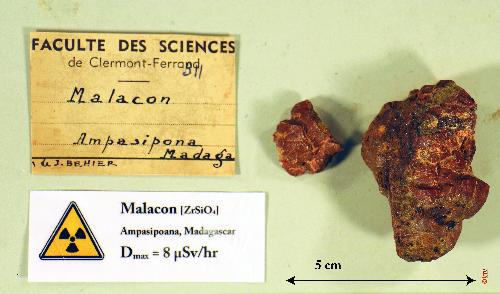 FACULTE DES SCIENCES
de Clermont-Ferrand
511
Malacon
Ampasipona
Madaga
J. BEHIER
Malacon [ZrSiO₄]
Ampasipoana, Madagascar
Dmax = 8 µSv/hr
5 cm